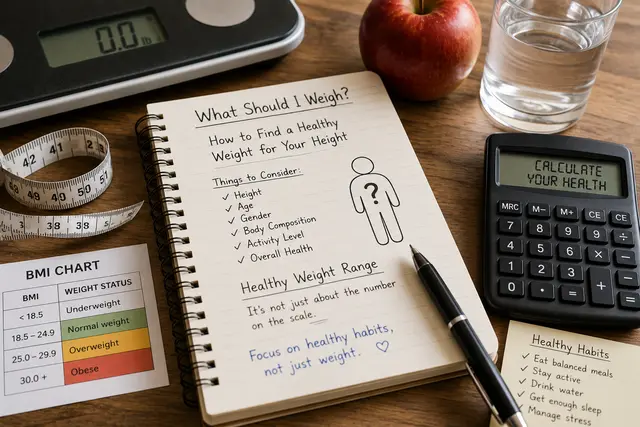 0.0 lb
What Should I Weigh?
How to Find a Healthy
Weight for Your Height
Things to Consider:
✓ Height
✓ Age
✓ Gender
✓ Body Composition
✓ Activity Level
✓ Overall Health
?
Healthy Weight Range
It's not just about the number
on the scale.
Focus on healthy habits,
not just weight. ♡
42 41
39 40 50 51
3 38 38 50
BMI CHART
BMI WEIGHT STATUS
< 18.5 Underweight
18.5 – 24.9 Normal weight
25.0 – 29.9 Overweight
30.0 + Obese
CALCULATE
YOUR HEALTH
MRC M– M+ CE CE
7 8 9 ÷
4 5 6 ×
1 2 3 –
0 . = +
Healthy Habits
✓ Eat balanced meals
✓ Stay active
✓ Drink water
✓ Get enough sleep
✓ Manage stress